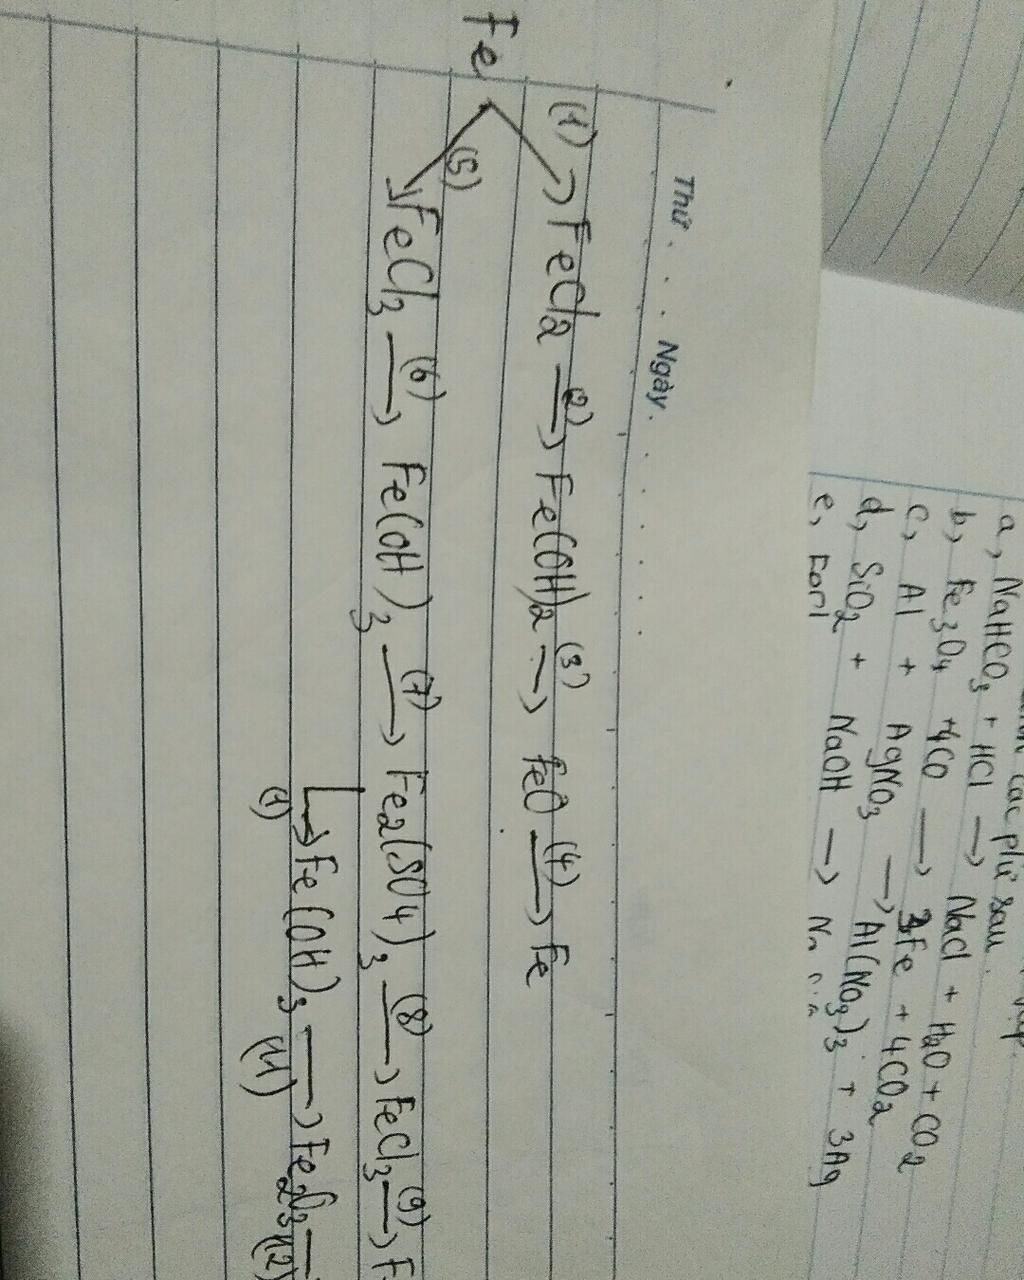 Thứ . . . Ngày . . . . . . .
(1) → FeCl2 (2)→ Fe(OH)2 (3)→ FeO (4)→ Fe
Fe
(5) → FeCl3 (6)→ Fe(OH)3 (7)→ Fe2(SO4)3 (8)→ FeCl3 (9)→
(1) → Fe(OH)3 (11)→ Fe2O3 (12)
các ptử sau
a, NaHCO3 + HCl → NaCl + H2O + CO2
b, Fe3O4 + 4CO → 3Fe + 4CO2
c, Al + AgNO3 → Al(NO3)3 + 3Ag
d, SiO2 + NaOH →
e,